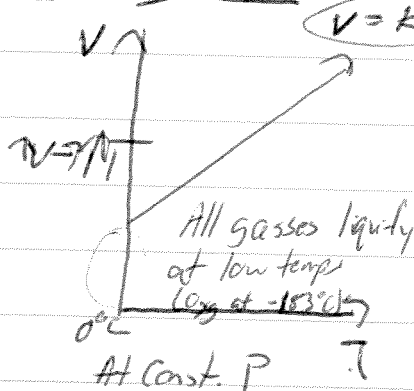 V = k
V
All gasses liquify
at low temps
(Oxg at -183°C)
0°C
T
At Const. P